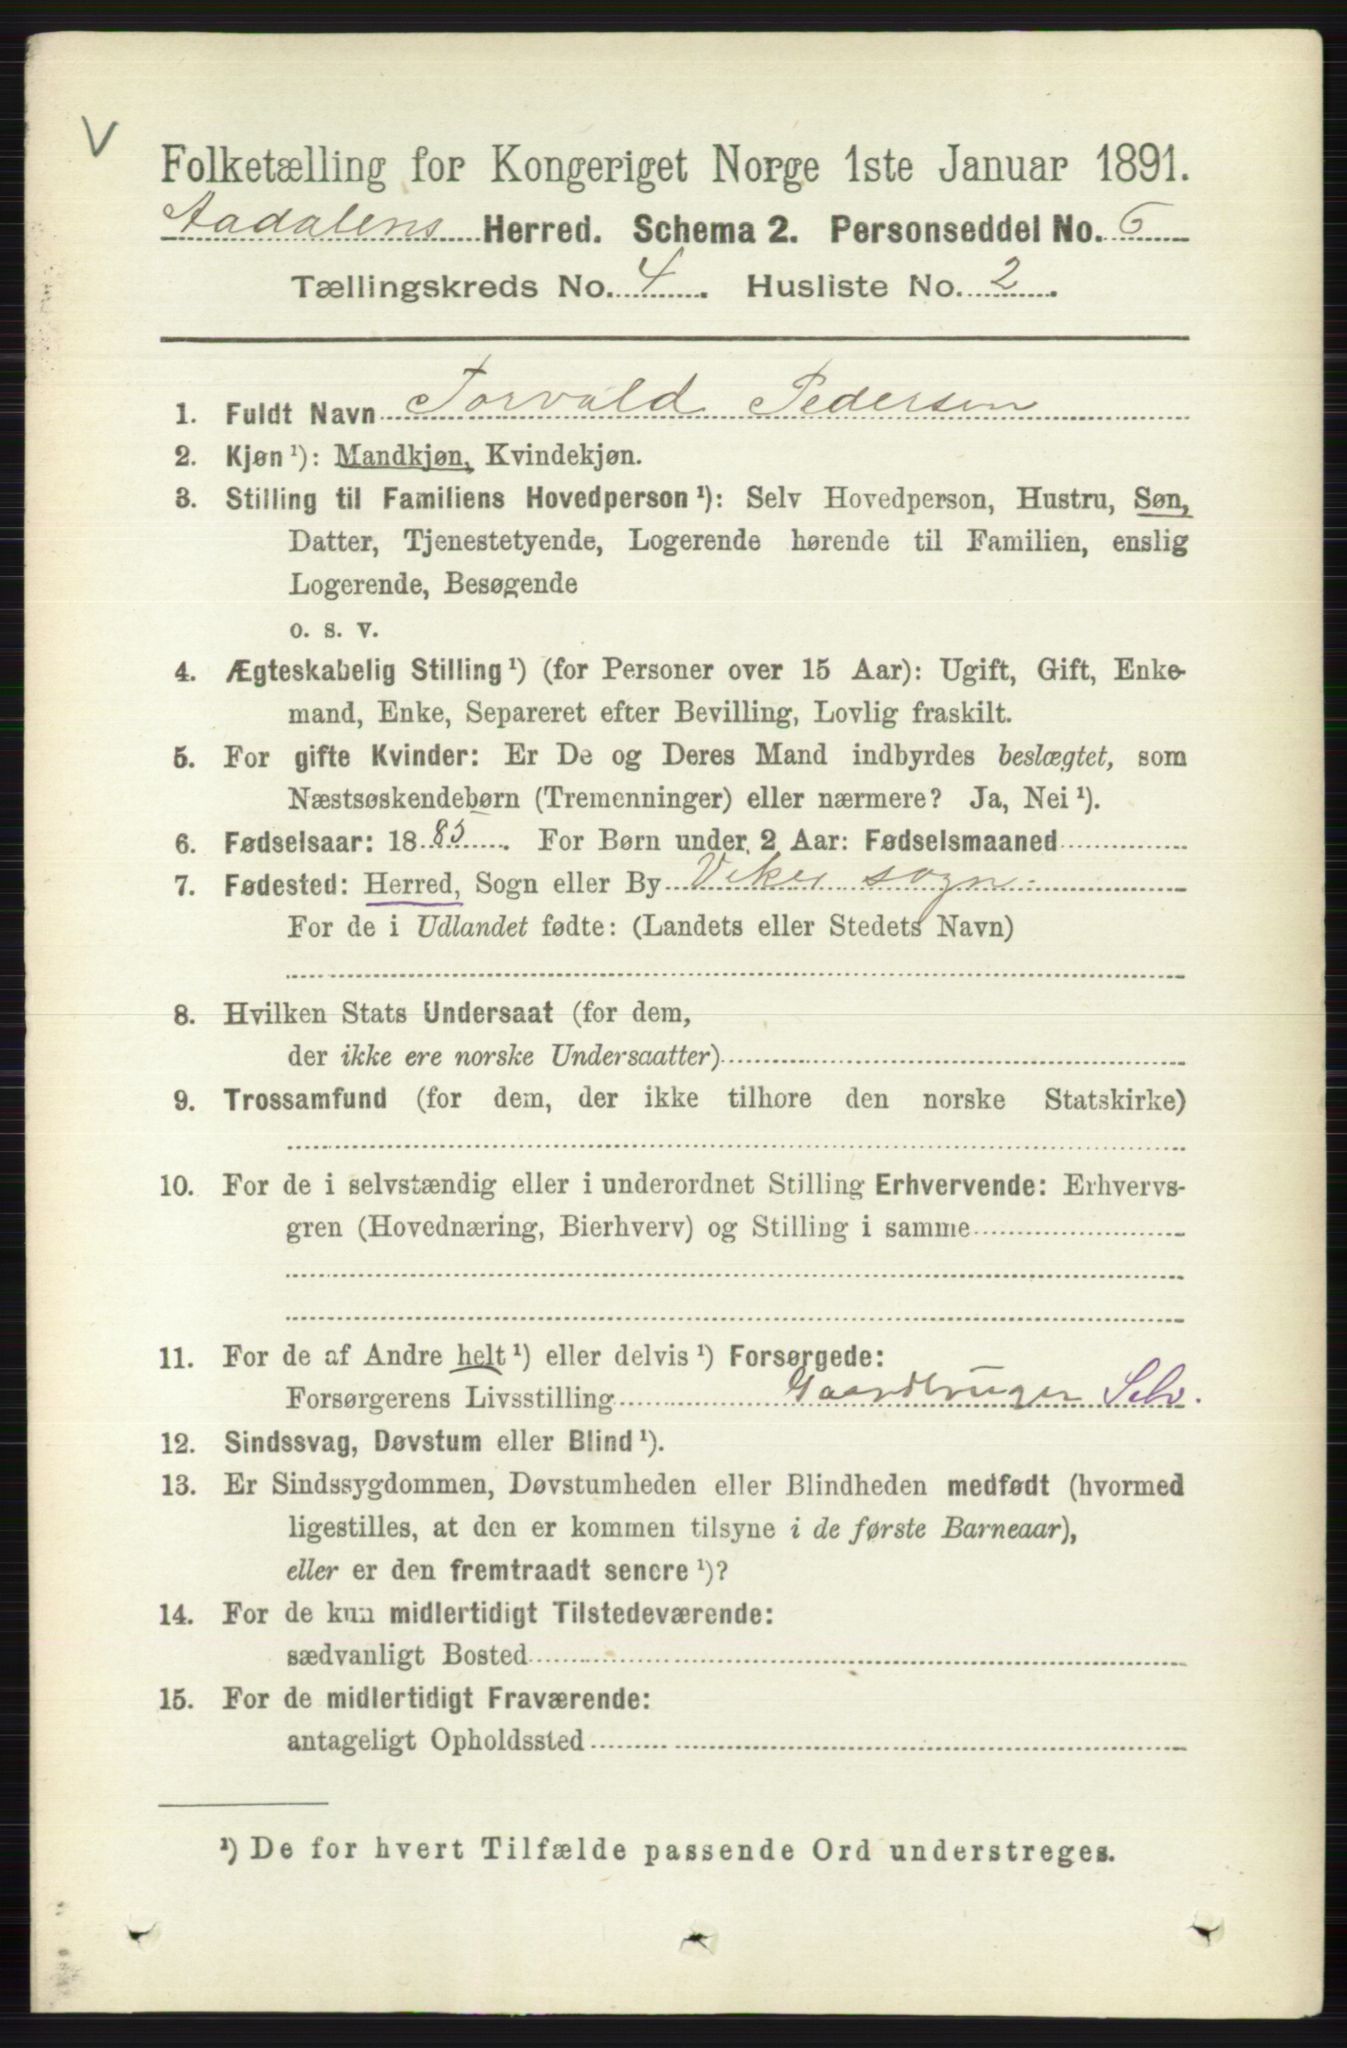 V
Folketælling for Kongeriget Norge 1ste Januar 1891.
Aadalens Herred. Schema 2. Personseddel No. 6
Tællingskreds No. 4. Husliste No. 2.
1. Fuldt Navn Torvald Pedersen
2. Kjøn ¹): Mandkjøn, Kvindekjøn.
3. Stilling til Familiens Hovedperson ¹): Selv Hovedperson, Hustru, Søn,
Datter, Tjenestetyende, Logerende hørende til Familien, enslig
Logerende, Besøgende
o. s. v.
4. Ægteskabelig Stilling ¹) (for Personer over 15 Aar): Ugift, Gift, Enke-
mand, Enke, Separeret efter Bevilling, Lovlig fraskilt.
5. For gifte Kvinder: Er De og Deres Mand indbyrdes beslægtet, som
Næstsøskendebørn (Tremenninger) eller nærmere? Ja, Nei ¹).
6. Fødselsaar: 1885. For Børn under 2 Aar: Fødselsmaaned
7. Fødested: Herred, Sogn eller By Viker sogn.
For de i Udlandet fødte: (Landets eller Stedets Navn)
8. Hvilken Stats Undersaat (for dem,
der ikke ere norske Undersaatter)
9. Trossamfund (for dem, der ikke tilhøre den norske Statskirke)
10. For de i selvstændig eller i underordnet Stilling Erhvervende: Erhvervs-
gren (Hovednæring, Bierhverv) og Stilling i samme
11. For de af Andre helt ¹) eller delvis ¹) Forsørgede:
Forsørgerens Livsstilling Gaardbruger Selv.
12. Sindssvag, Døvstum eller Blind ¹).
13. Er Sindssygdommen, Døvstumheden eller Blindheden medfødt (hvormed
ligestilles, at den er kommen tilsyne i de første Barneaar),
eller er den fremtraadt senere ¹)?
14. For de kun midlertidigt Tilstedeværende:
sædvanligt Bosted
15. For de midlertidigt Fraværende:
antageligt Opholdssted
¹) De for hvert Tilfælde passende Ord understreges.